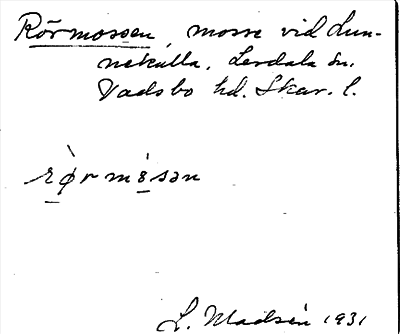 Rörmossen, mosse vid Lun-
nekulla, Lerdala sn.
Vadsbo hd. Skar. l.
rø̀rmósən
L. Madsén 1931